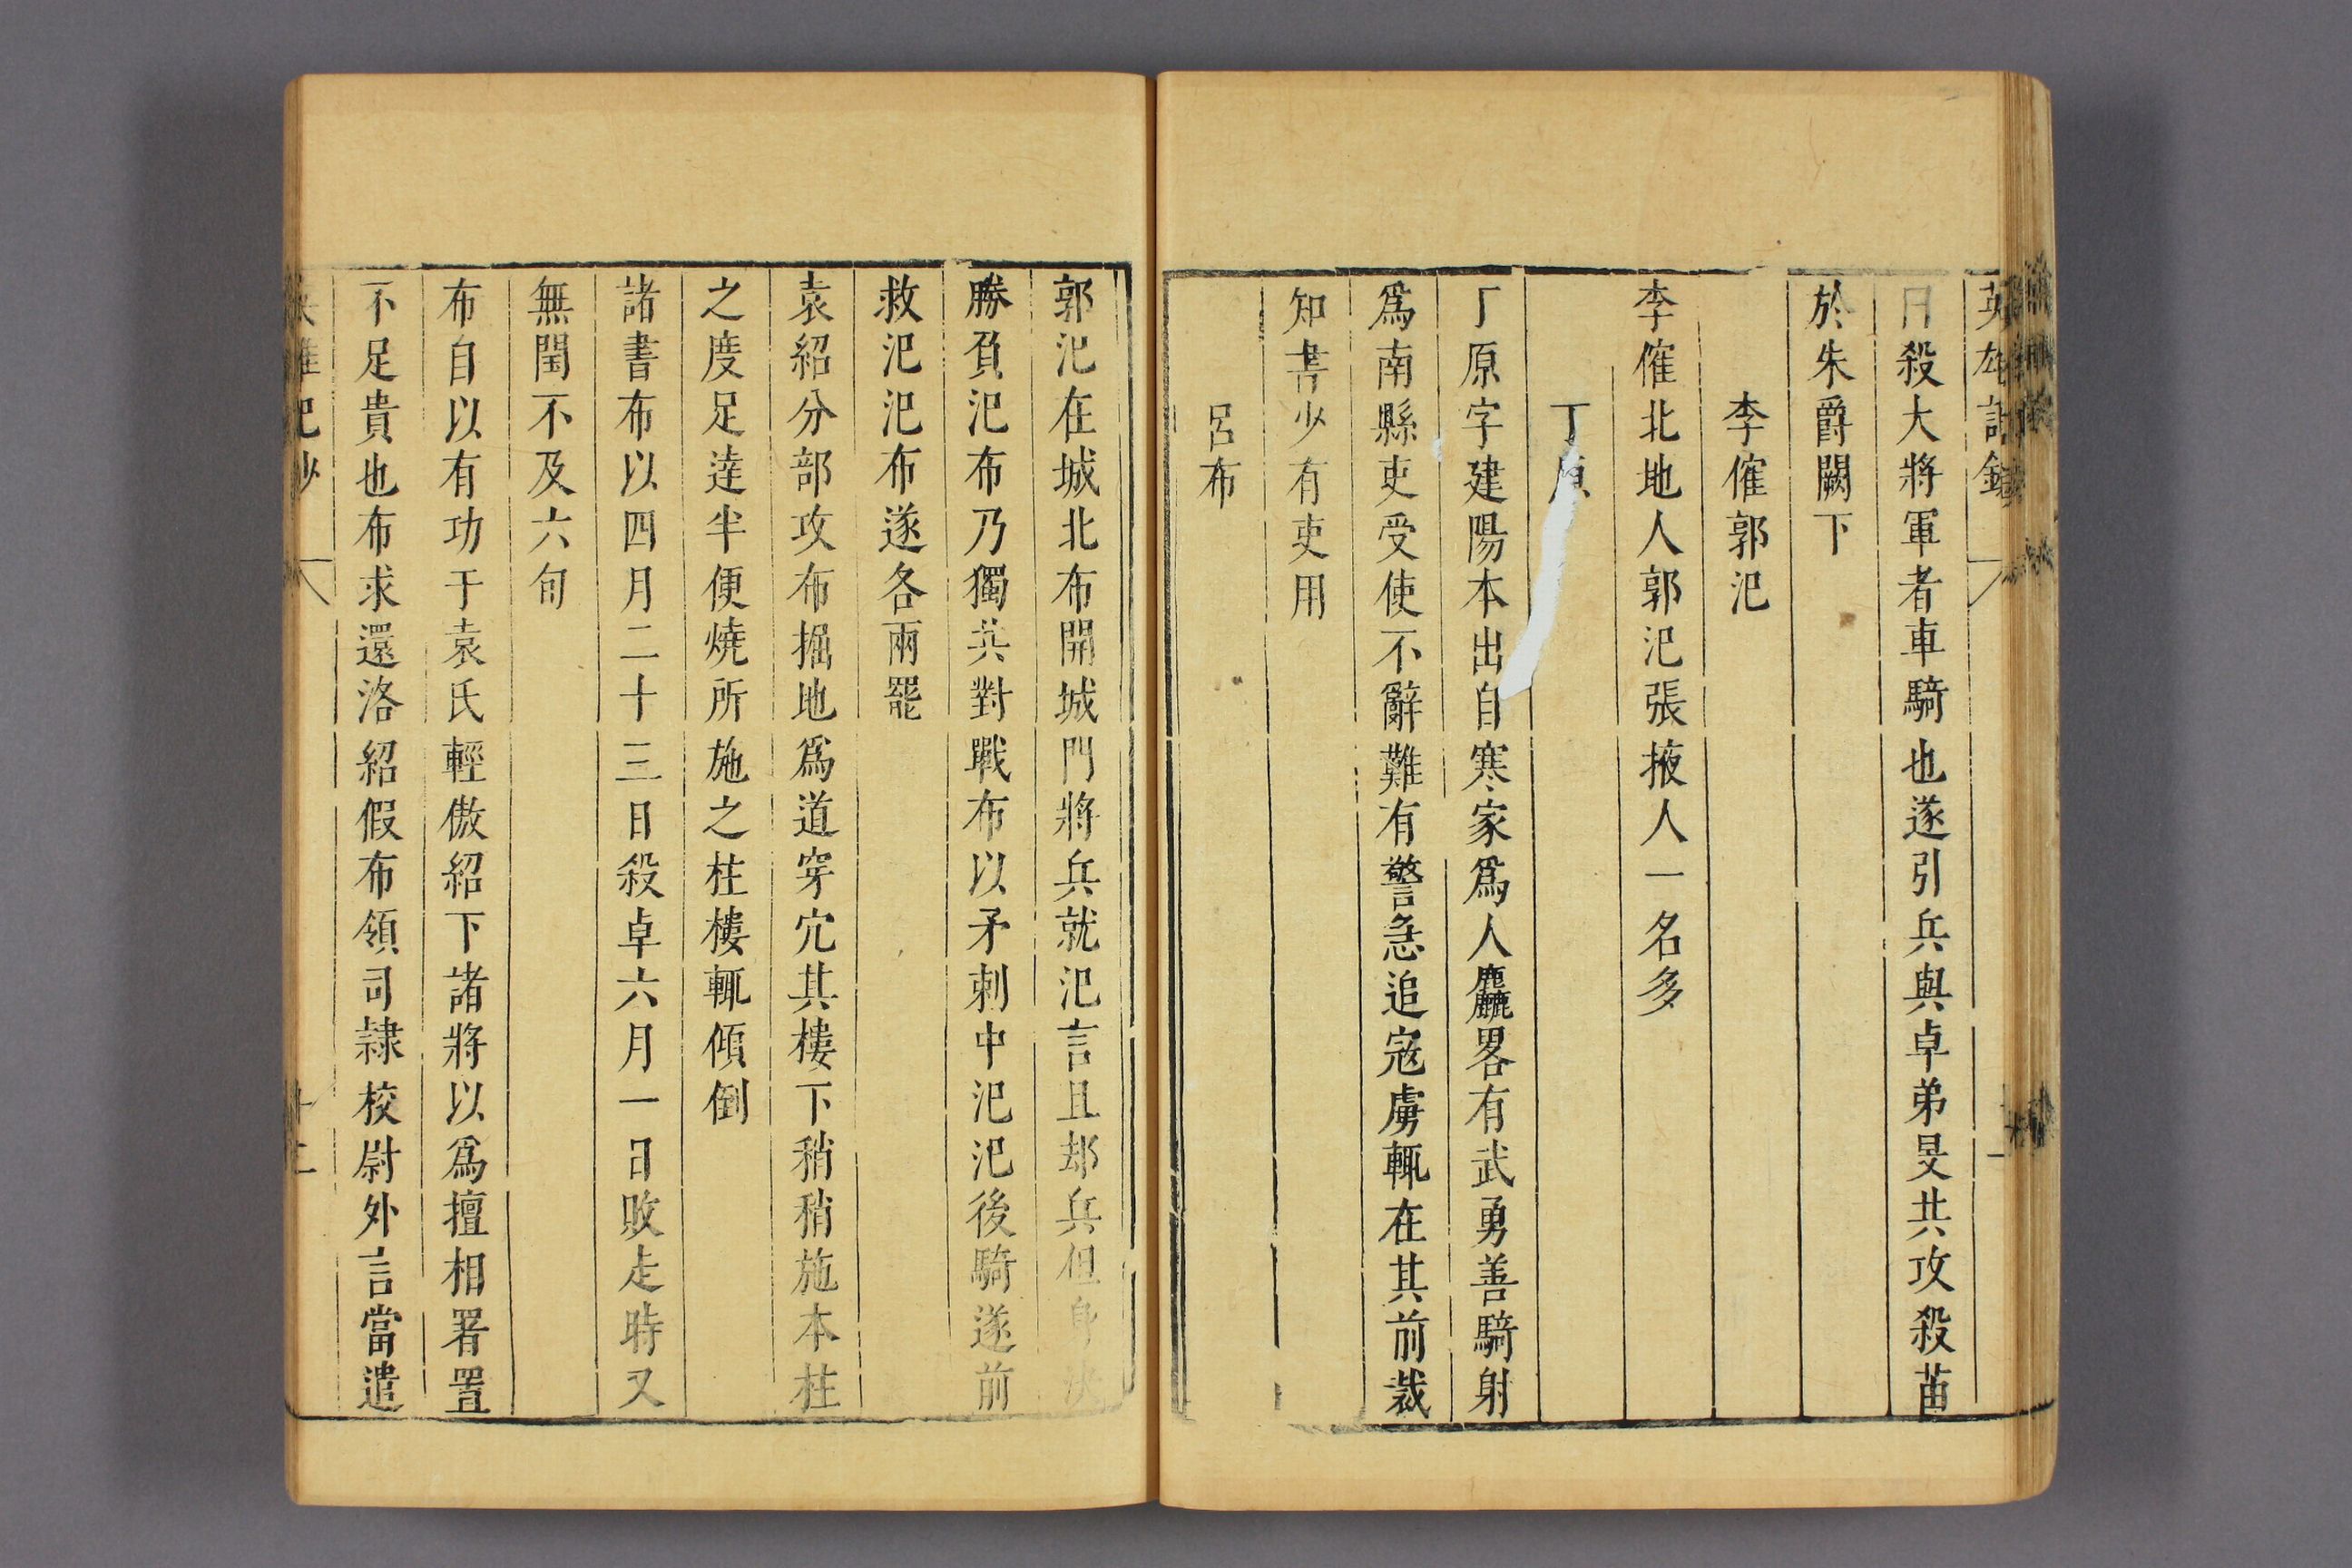 英雄記鈔
日殺大將軍者車騎也遂引兵與卓弟旻共攻殺苗
於朱爵闕下
李傕郭汜
李傕北地人郭汜張掖人一名多
丁原
丁原字建陽本出自寒家爲人麤畧有武勇善騎射
爲南縣吏受使不辭難有警急追寇虜輒在其前裁
知書少有吏用
呂布
郭汜在城北布開城門將兵就汜言且却兵但身決
勝負汜布乃獨共對戰布以矛刺中汜汜後騎遂前
救汜汜布遂各兩罷
袁紹分部攻布掘地爲道穿穴其樓下稍稍施木柱
之度足達半便燒所施之柱樓輒傾倒
諸書布以四月二十三日殺卓六月一日敗走時又
無閏不及六旬
布自以有功于袁氏輕傲紹下諸將以爲擅相署置
不足貴也布求還洛紹假布領司隷校尉外言當遣
雄記鈔 十二